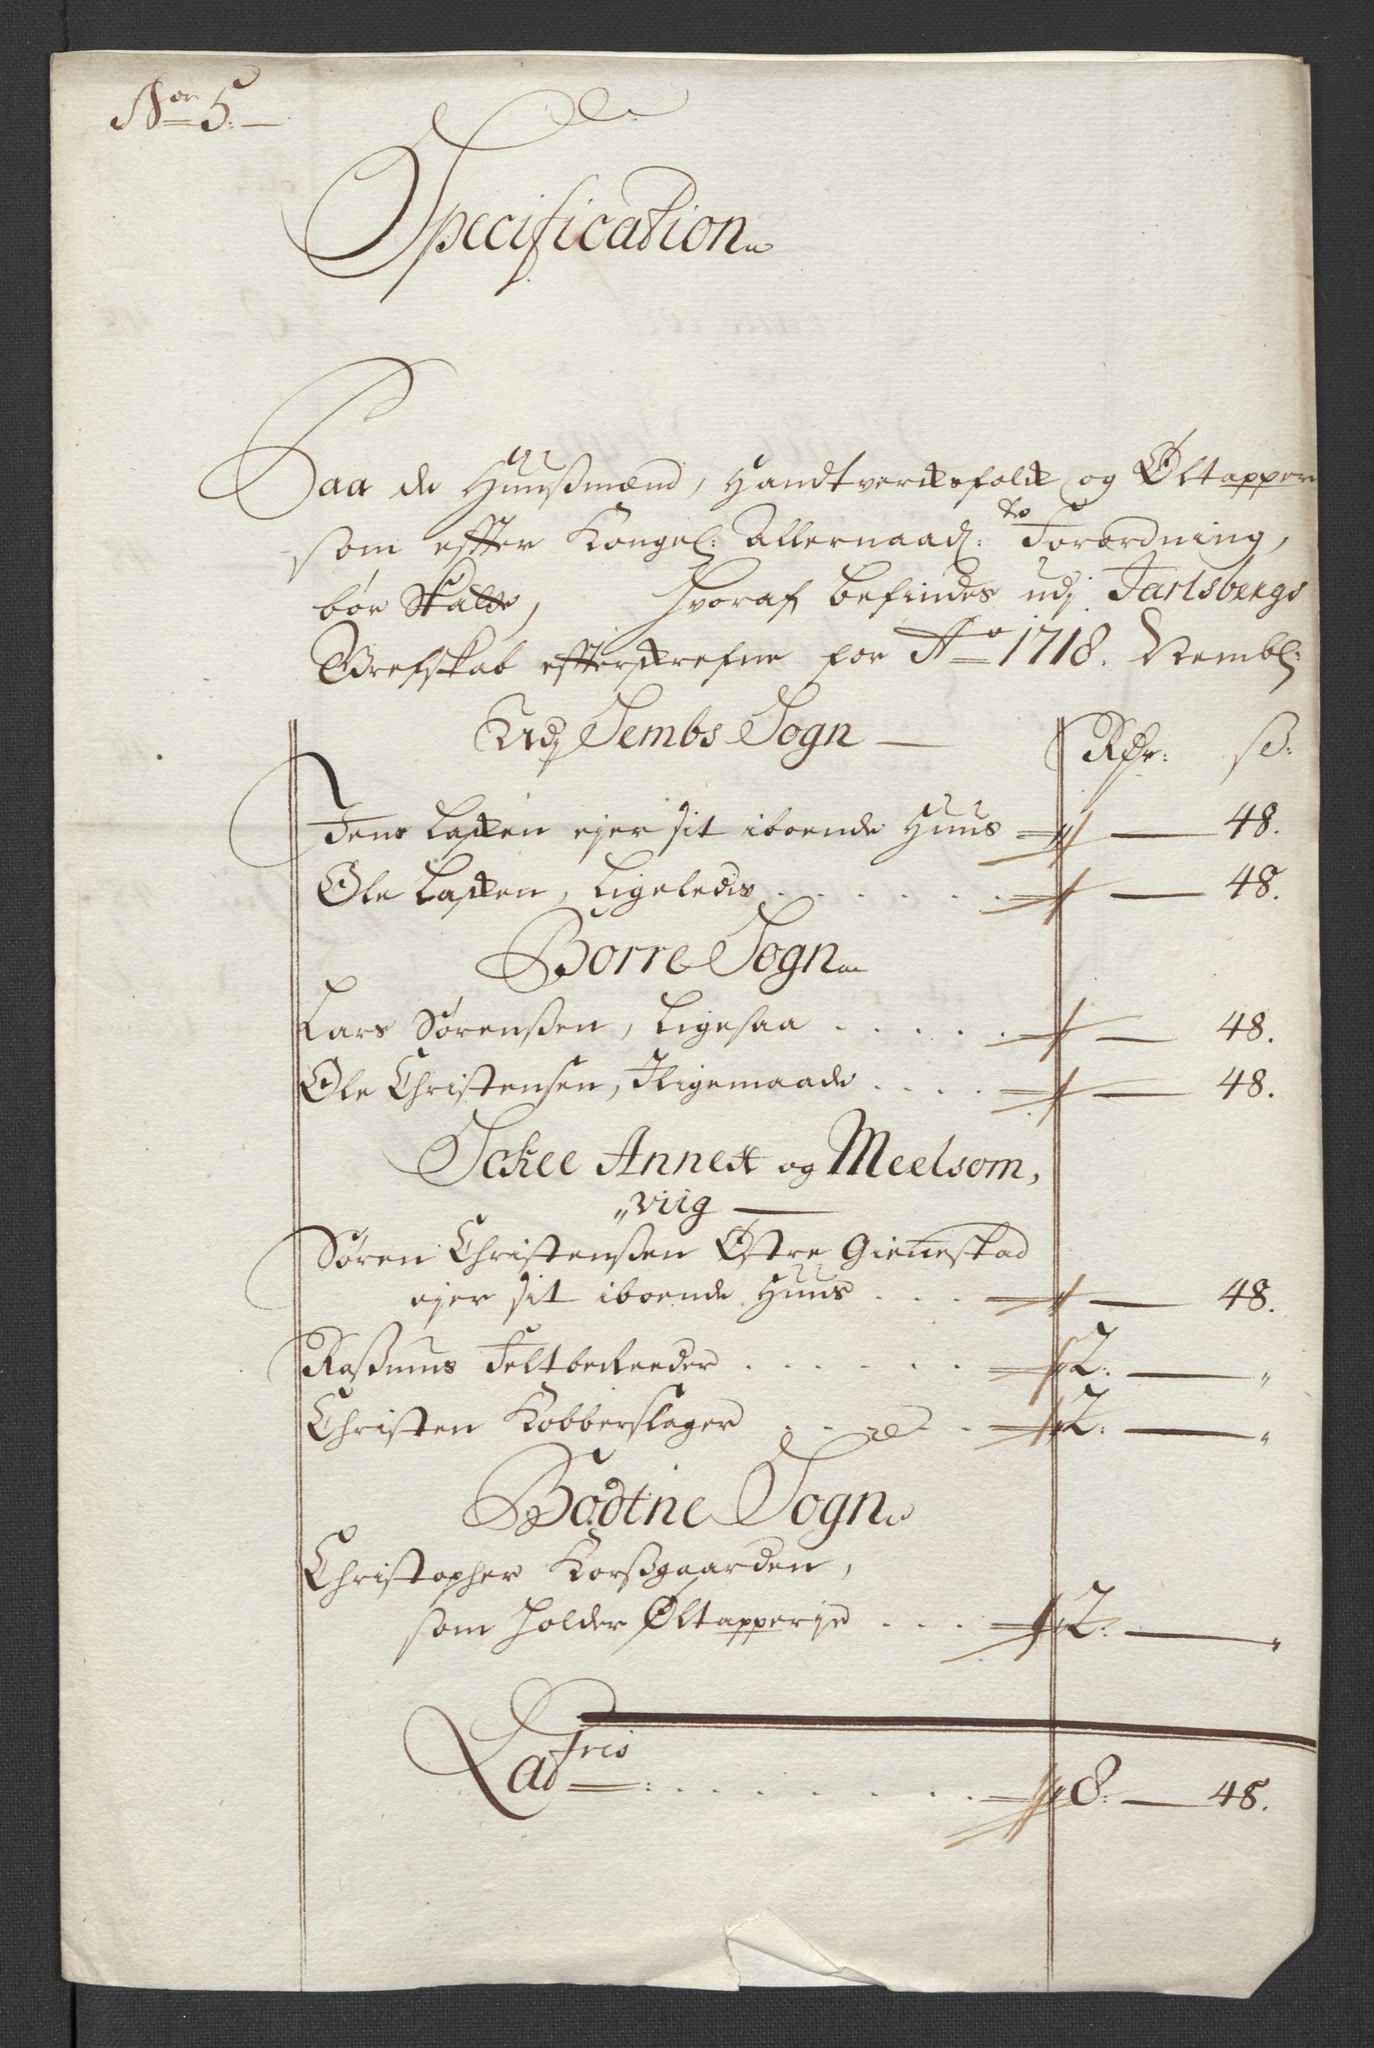 Nor 5.
Specification
Paa de Huusmænd, Handtverksfolk og Øltapper
som effter Kongel: Allernaad: ste Forordning,
bør Skatte, hvoraf befindes udj Jarlsbergs
Grefskab effterskrefne for Ao 1718. Nembl:
Udj Sembs Sogn —
Rdr: ß:
Jens Lasken ejer sit iboende Huus — 48.
Ole Lasken, Ligeledis . . . . . . — 48.
Borre Sogn
Lars Sørenßen, Ligesaa . . . . . — 48.
Ole Christensen, Iligemaade . . . . — 48.
Annext og Meelsom,
„viig —
Søren Christenßen Østre Gienestad
ejer sit iboende Huus . . . — 48.
Raßmus Feltbereeder . . . . . . 2: — „
Christen Kobberslager . . . . . 2: — „
Bodtne Sogn
Christopher Korßgaarden,
som holder Øltapperje . . . 2: — „
Latris . . . . . . . 8: — 48.